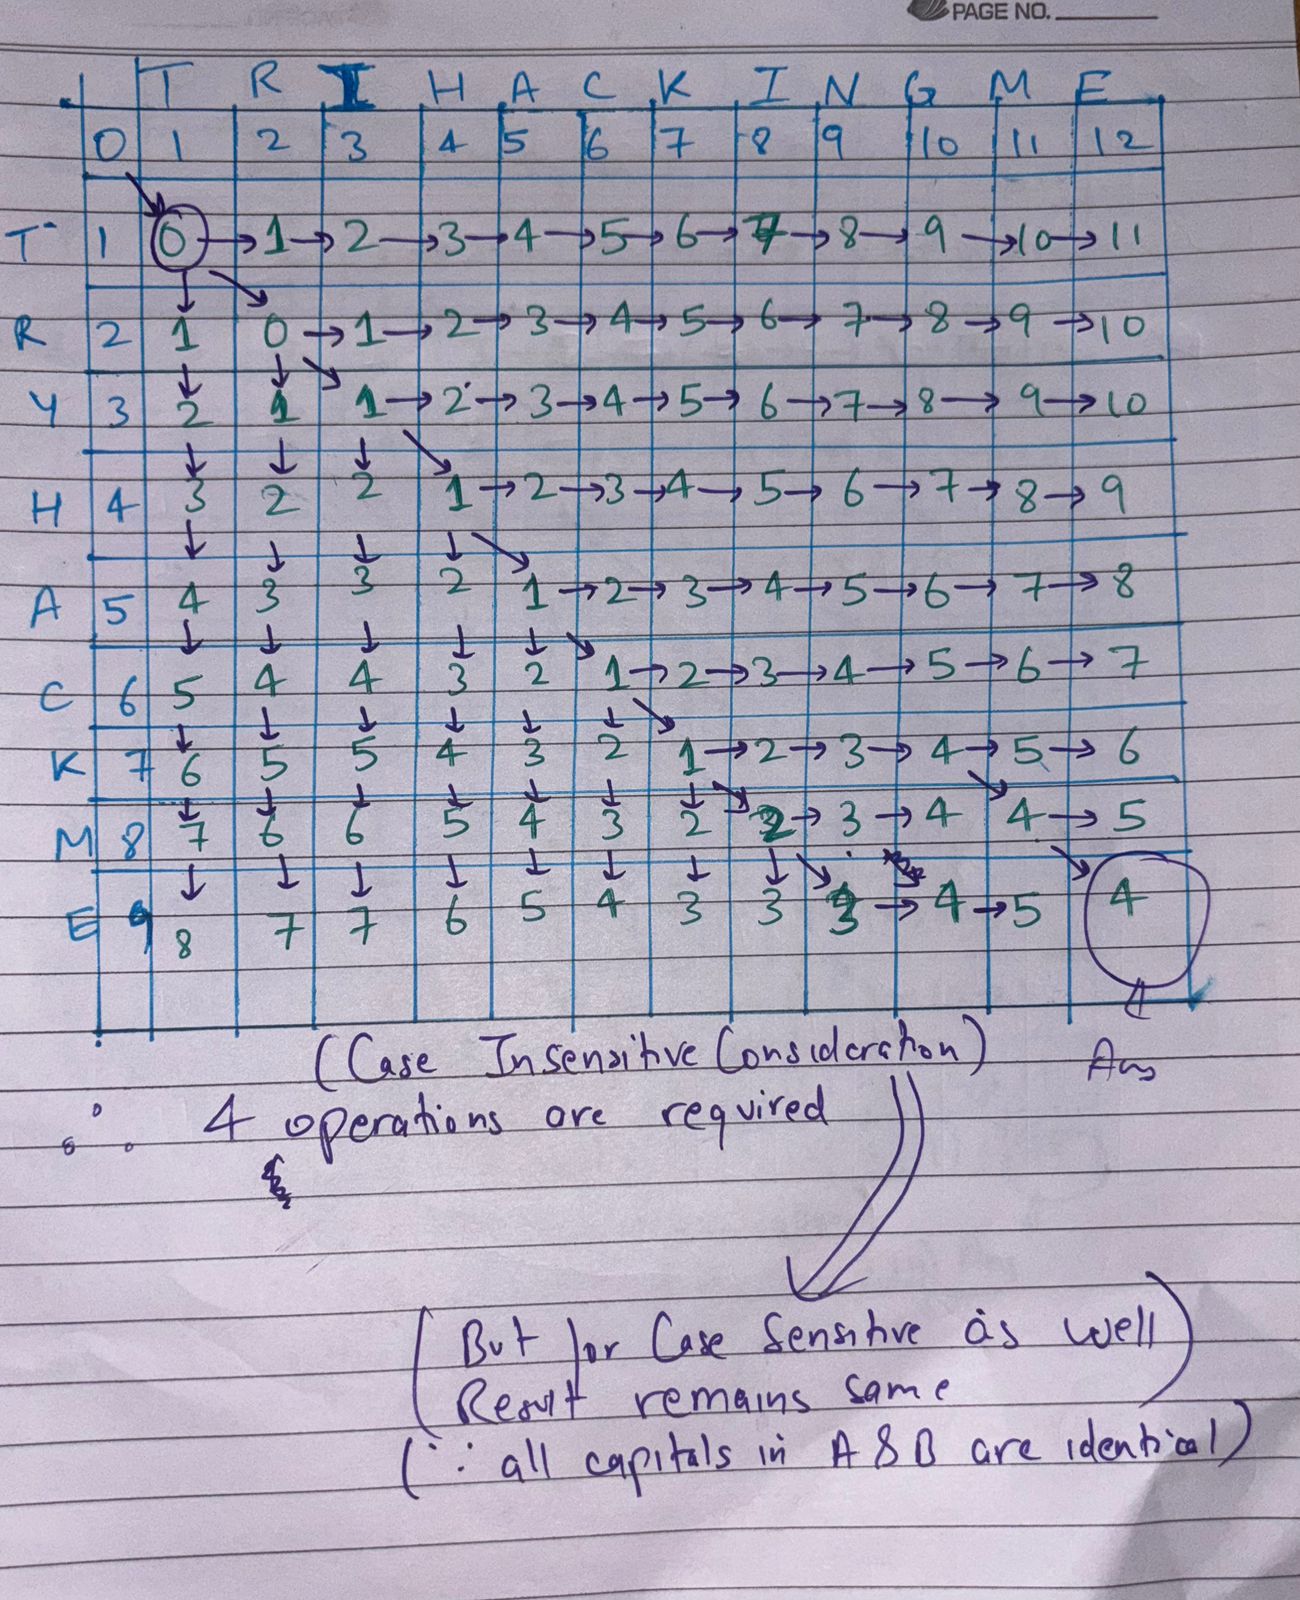 PAGE NO.
T R I H A C K I N G M E
0 1 2 3 4 5 6 7 8 9 10 11 12
T 1 0 → 1 → 2 → 3 → 4 → 5 → 6 → 7 → 8 → 9 → 10 → 11
R 2 1 0 → 1 → 2 → 3 → 4 → 5 → 6 → 7 → 8 → 9 → 10
Y 3 2 1 1 → 2 → 3 → 4 → 5 → 6 → 7 → 8 → 9 → 10
H 4 3 2 2 1 → 2 → 3 → 4 → 5 → 6 → 7 → 8 → 9
A 5 4 3 3 2 1 → 2 → 3 → 4 → 5 → 6 → 7 → 8
C 6 5 4 4 3 2 1 → 2 → 3 → 4 → 5 → 6 → 7
K 7 6 5 5 4 3 2 1 → 2 → 3 → 4 → 5 → 6
M 8 7 6 6 5 4 3 2 2 → 3 → 4 4 → 5
E 9 8 7 7 6 5 4 3 3 3 → 4 → 5 4
(Case Insensitive Consideration) Ans
∴ 4 operations are required
(But for Case Sensitive as well
Result remains same)
(∵ all capitals in A & B are identical)